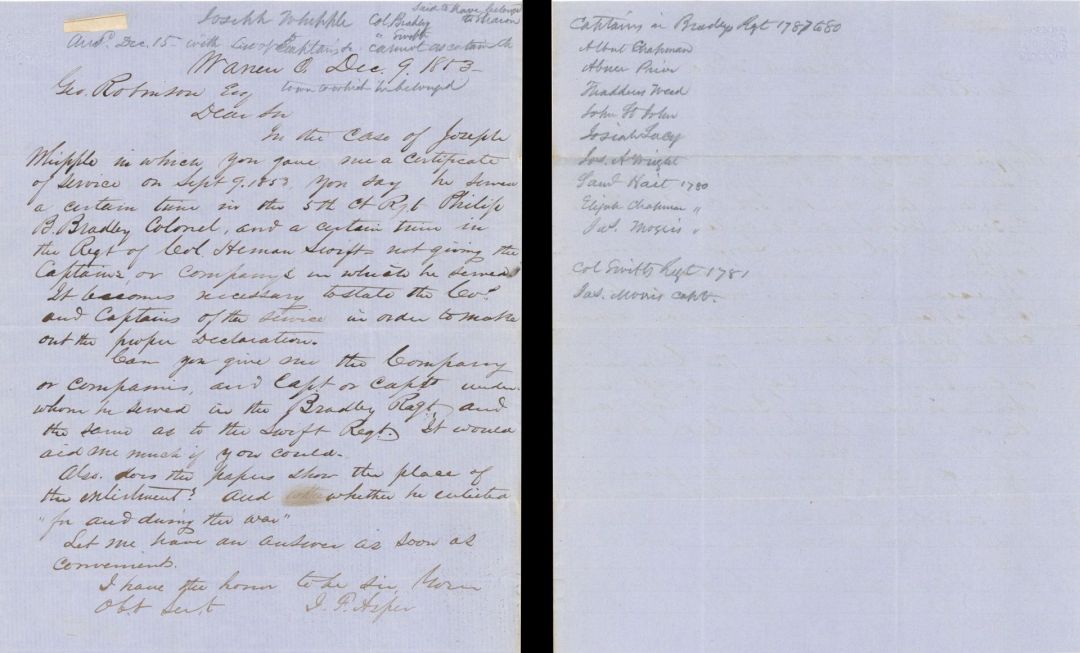 Said to have belonged
Joseph Whipple Col. Bradley to Sharon
" Swift
Ansd. Dec. 15 - with List of Captains cannot ascertain the
Warren O. Dec. 9. 1853
Geo. Robinson Esq town to which he belonged
Dear Sir
In the case of Joseph
Whipple in which you gave me a certificate
of service on Sept 9. 1853 you say he served
a certain time in the 5th Ct Rgt Philip
B. Bradley Colonel, and a certain time in
the Regt of Col. Heman Swift - not giving the
Captains, or company's in which he served
It becomes necessary to state the Co's
and Captains of the service in order to make
out the proper Declaration.
Can you give me the Company
or companies, and Capt. or Capts under
whom he served in the Bradley Regt, and
the same as to the Swift Regt. It would
aid me much if you could.
Also. does the papers show the place of
the enlistment? and whether he enlisted
"for and during the war"
Let me have an answer as soon as
convenient.
I have the honor to be sir, Your
Obt. Servt J. F. Asper
Captains in Bradleys Rgt 1787 to 80
Albert Chapman
Abner Prior
Thaddeus Weed
John St John
Josiah Lacy
Jos. A Wright
Saml Hait 1780
Elijah Chapman "
Jas. Morris "
Col Swifts Regt 1781
Jas. Morris Capt.